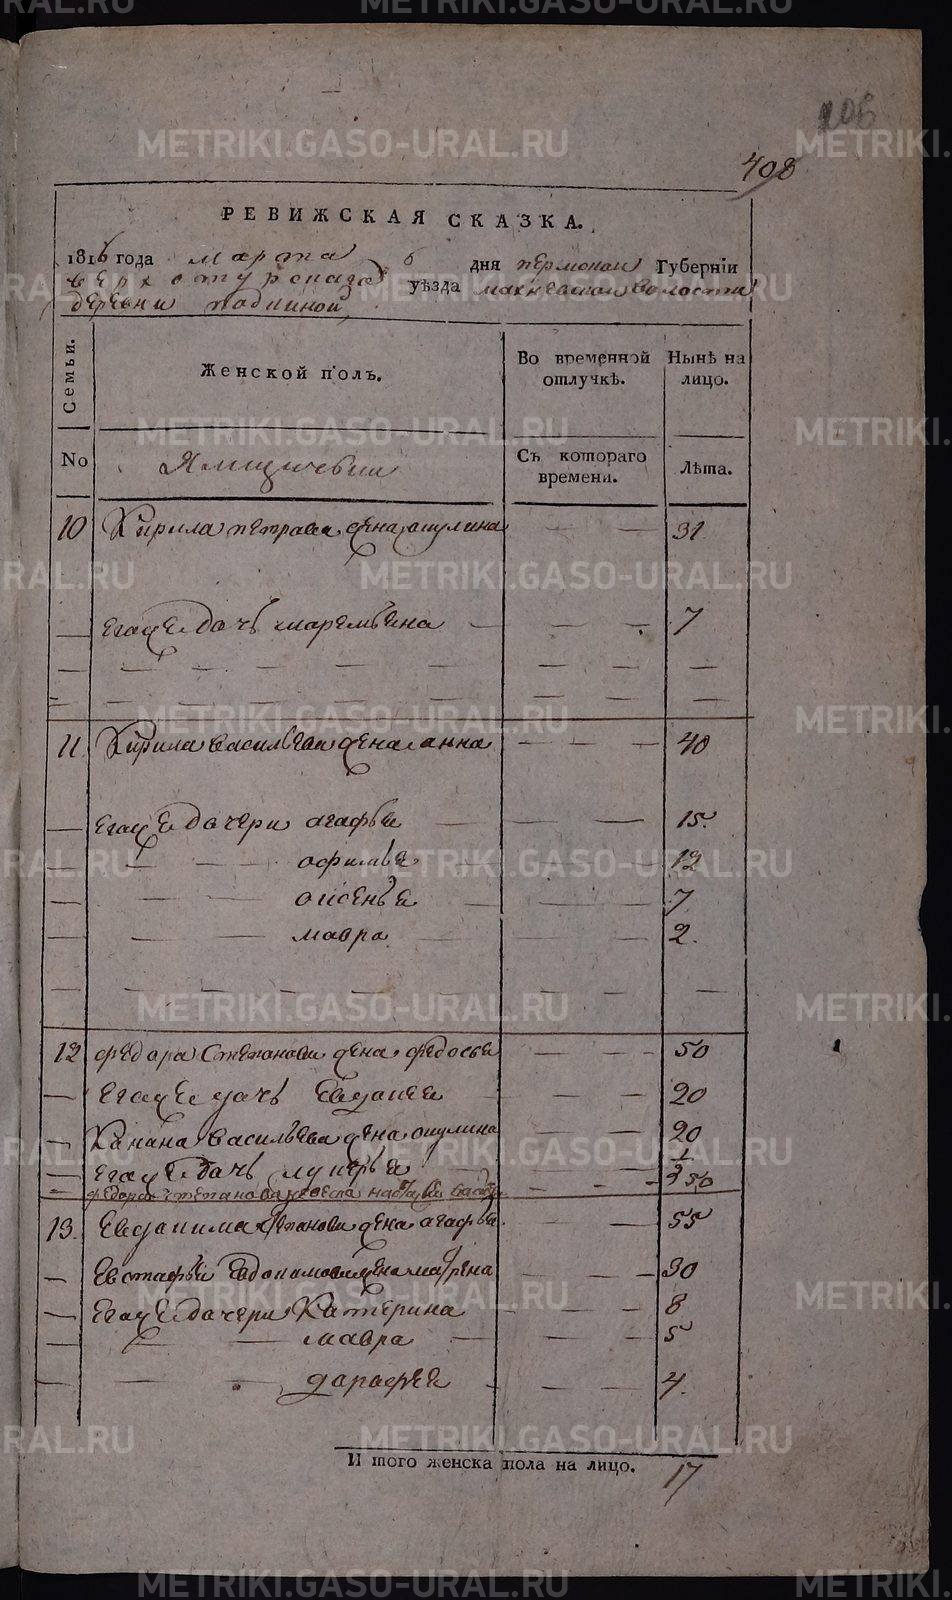 106
408
РЕВИЖСКАЯ СКАЗКА.
1816 года марта 6 дня пермской Губерніи
верхотурскаго уѣзда махневской волости
деревни
Семьи. Женской полъ. Во временной отлучкѣ. Нынѣ на лицо.
No Ямщичьи Съ котораго времени. Лѣта.
10 Кирила петрова жена акулина — — 31
— егож дочь маремьена — — — 7
11 Кирила васильева жена анна — — — 40
— егож дочери агафье — — — 15.
— — — офимье — — 12
— — — оксенье — — — 7
— — — мавра — — — 2.
12 федора степанова жена федосье — — — 50
— егоже дочь евдокее — — 20
— Канана васильева жена акулина — — — 20
— егоже дочь лукерье — — —
— федора степанова — — — 50
13. Евдокима степанова жена агафье. — — 55
— евстафьи евдокимова жена матрена — — — 30
— егоже дочери Катерина — — — 8
— — — мавра — — — 5
— — — дарафее — — — 4.
И того женска пола на лицо. 17
METRIKI.GASO-URAL.RU